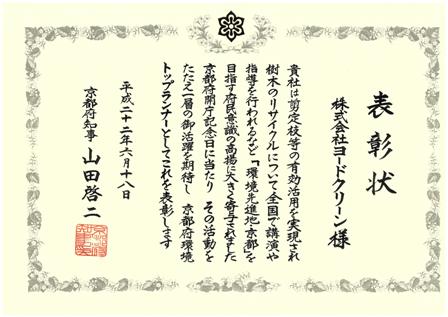 表彰状
株式会社ヨードクリーン様
貴社は剪定枝等の有効活用を実現され
樹木のリサイクルについて全国で講演や
指導を行われるなど「環境先進地京都」を
目指す府民意識の高揚に大きく寄与されました
京都府開庁記念日に当たり その活動を
たたえ一層の御活躍を期待し 京都府環境
トップランナーとしてこれを表彰します
平成二十二年六月十八日
京都府知事 山田啓二